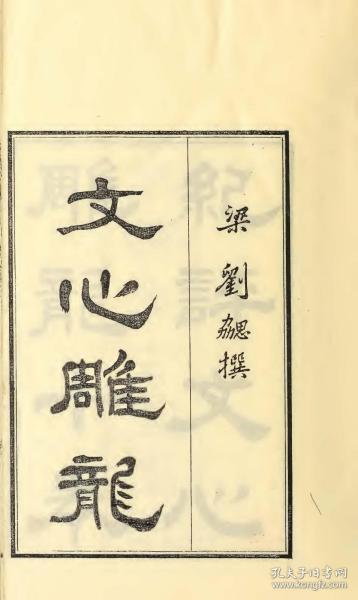 梁劉勰撰
文心雕龍
孔夫子旧书网